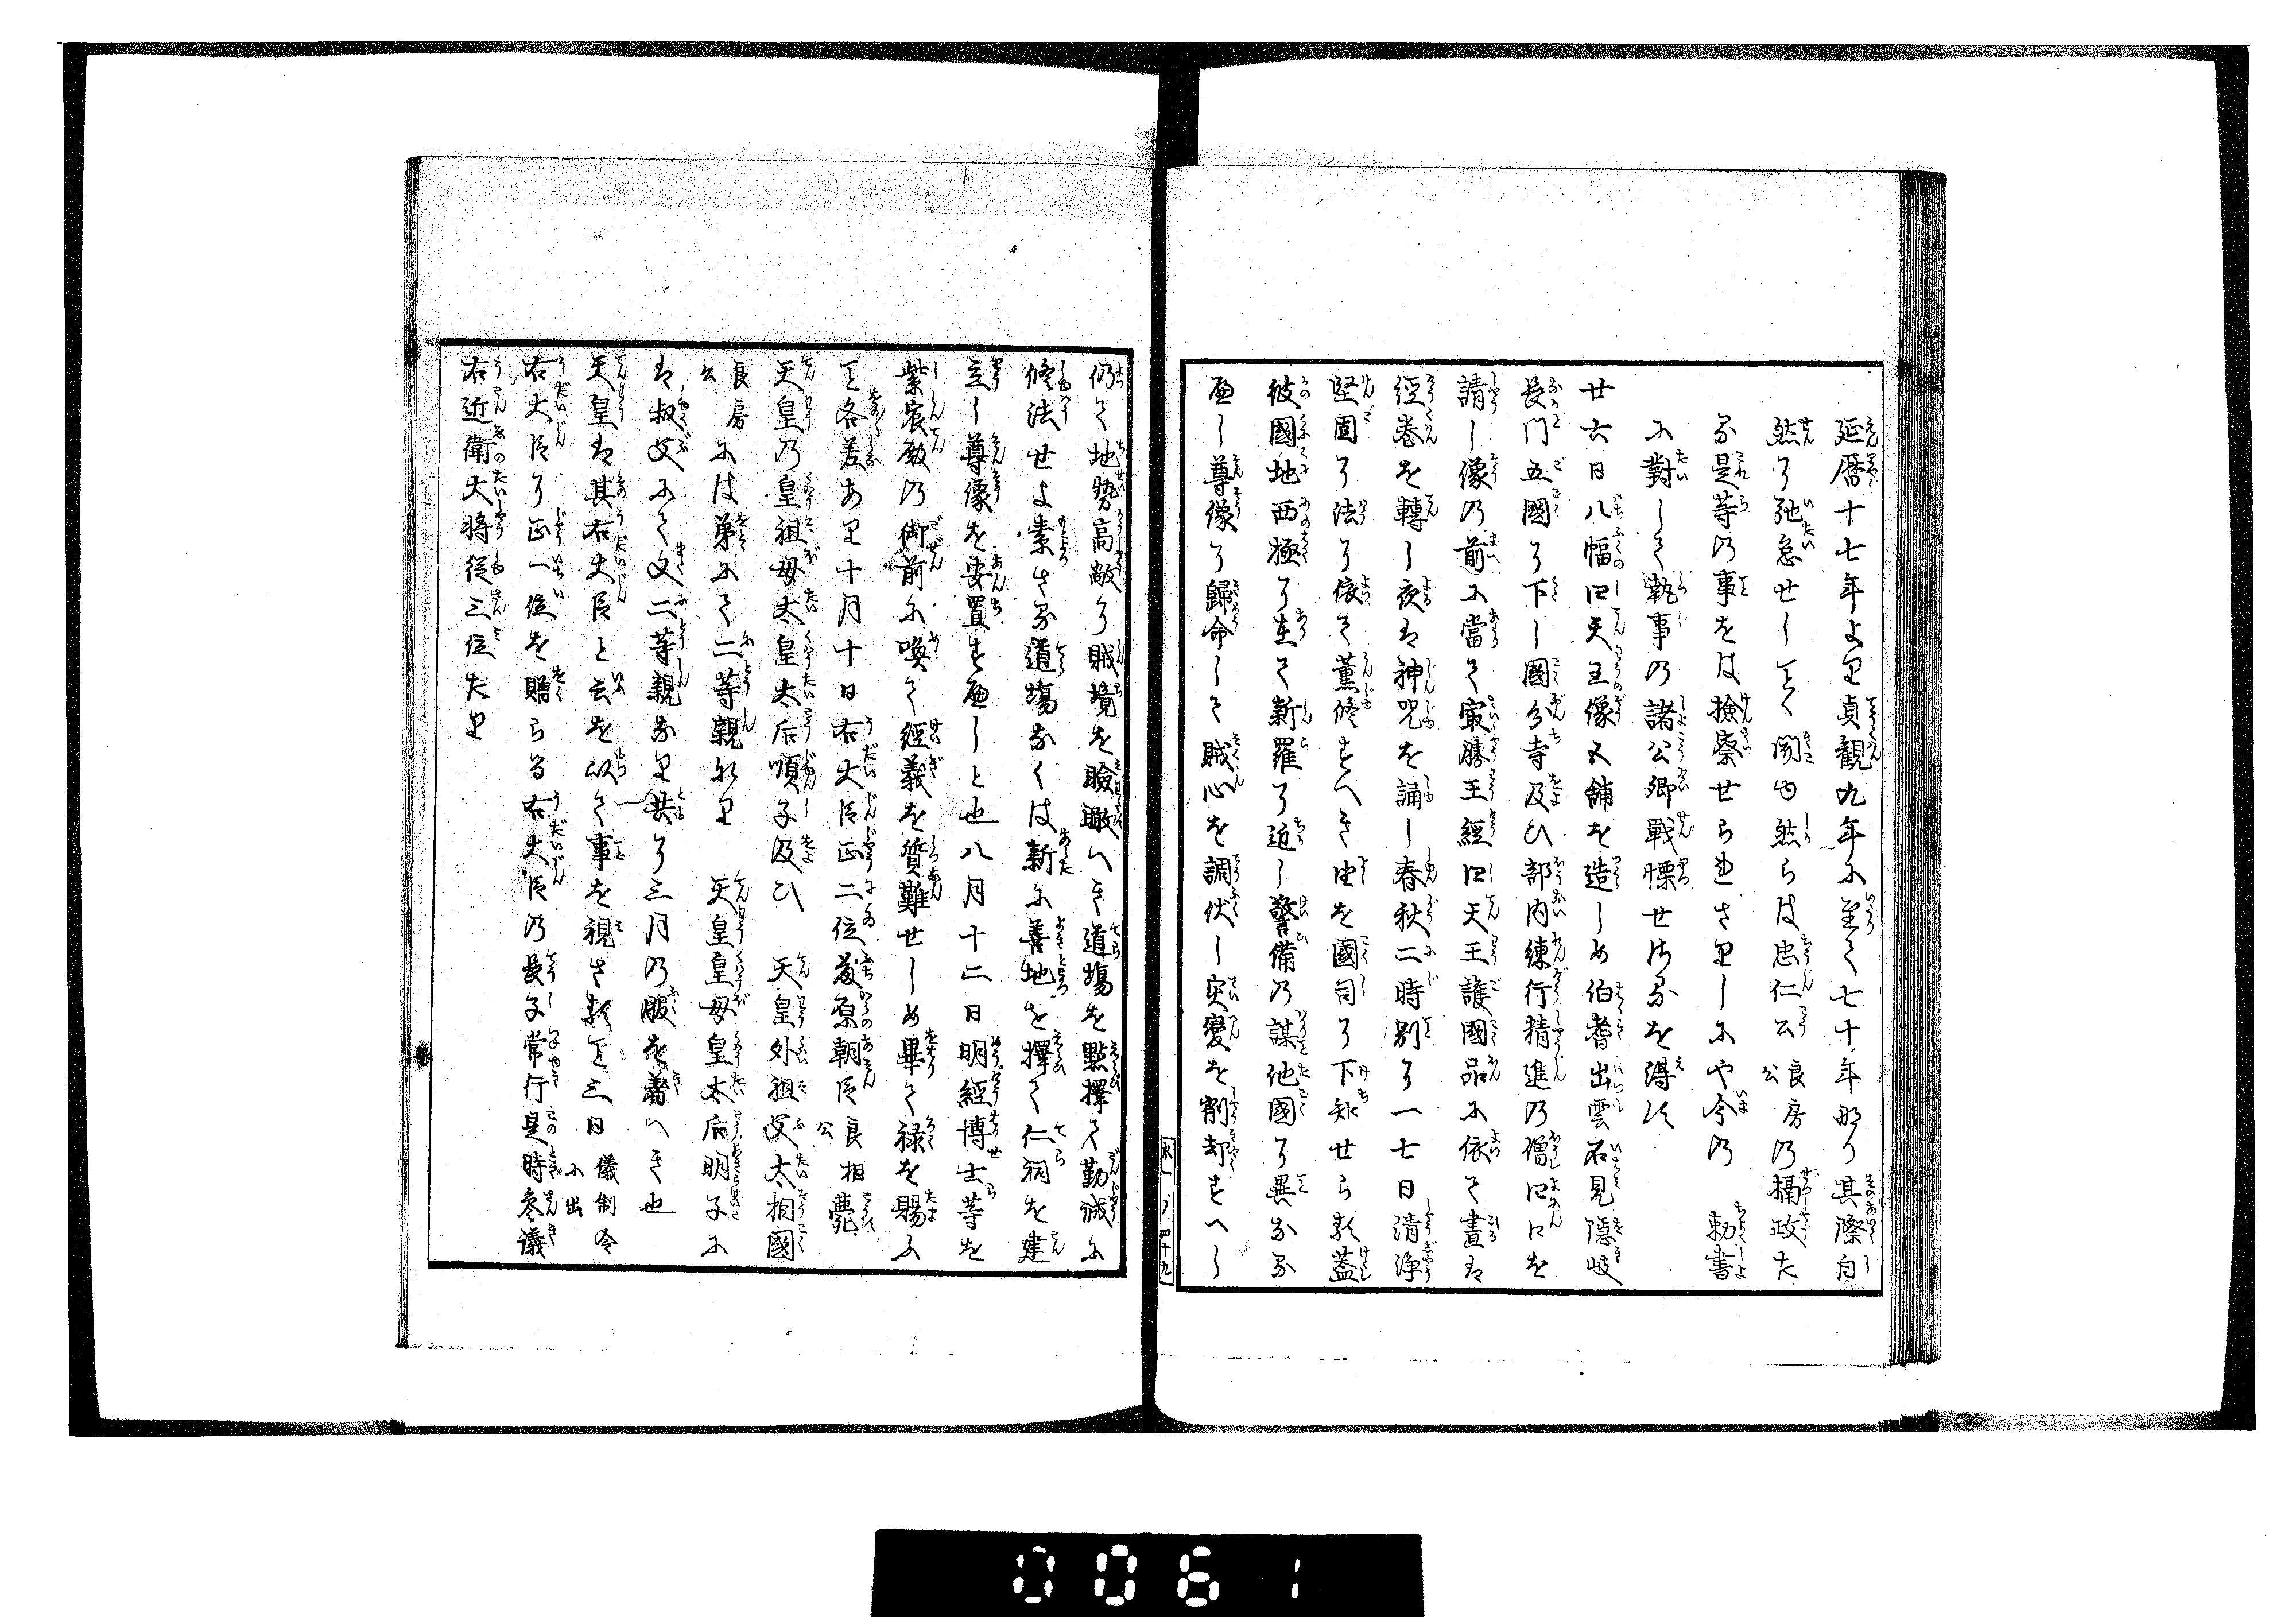 延暦十七年より貞観九年に至て七十年那り其際自
然り弛怠せしをく聞由然らは忠仁公良房公の摂政た
る是等の事をは撿察せられさりしにや今の 勅書
に對して執事の諸公卿戦慄せさるを得す
廿六日八幅四天王像五舗を造しめ伯耆出雲石見隠岐
長門五國り下し國分寺及ひ部内練行精進の僧四口を
請し像の前に當て㝡勝王經四天王護國品に依て晝は
經巻を轉し夜は神咒を誦し春秋二時別り一七日清浄
堅固り法り依て薫修すへき由を國司り下知せら豦蓋
彼國地西極り在て新羅り近し警備の謀他國り異なる
へし尊像り歸命して賊心を調伏し灾變を削却すへし
仍て地勢高敞り賊境を瞼瞰へき道塲を點擇て勤誡に
修法せよ素さる道塲なくは新に善地を擇て仁祠を建
立し尊像を安置すへしと也八月十二日明經博士等を
紫宸殿の御前に喚て經義を質難せしめ畢て禄を賜ふ
を各差あり十月十日右大臣正二位藤原朝臣良相公薨
天皇の皇祖母太皇太后順子及ひ 天皇外祖父太相國
良房公には弟にて二等親なり 天皇皇母皇太后明子に
は叔父にて又二等親なり共り三月の服を著へき也
天皇は其右大臣と云を以て事を視さ豦を三日儀制令に出
右大臣り正一位を贈らる右大臣の長子常行是時参議
右近衛大将従三位たり
永一ノ四十九
0061